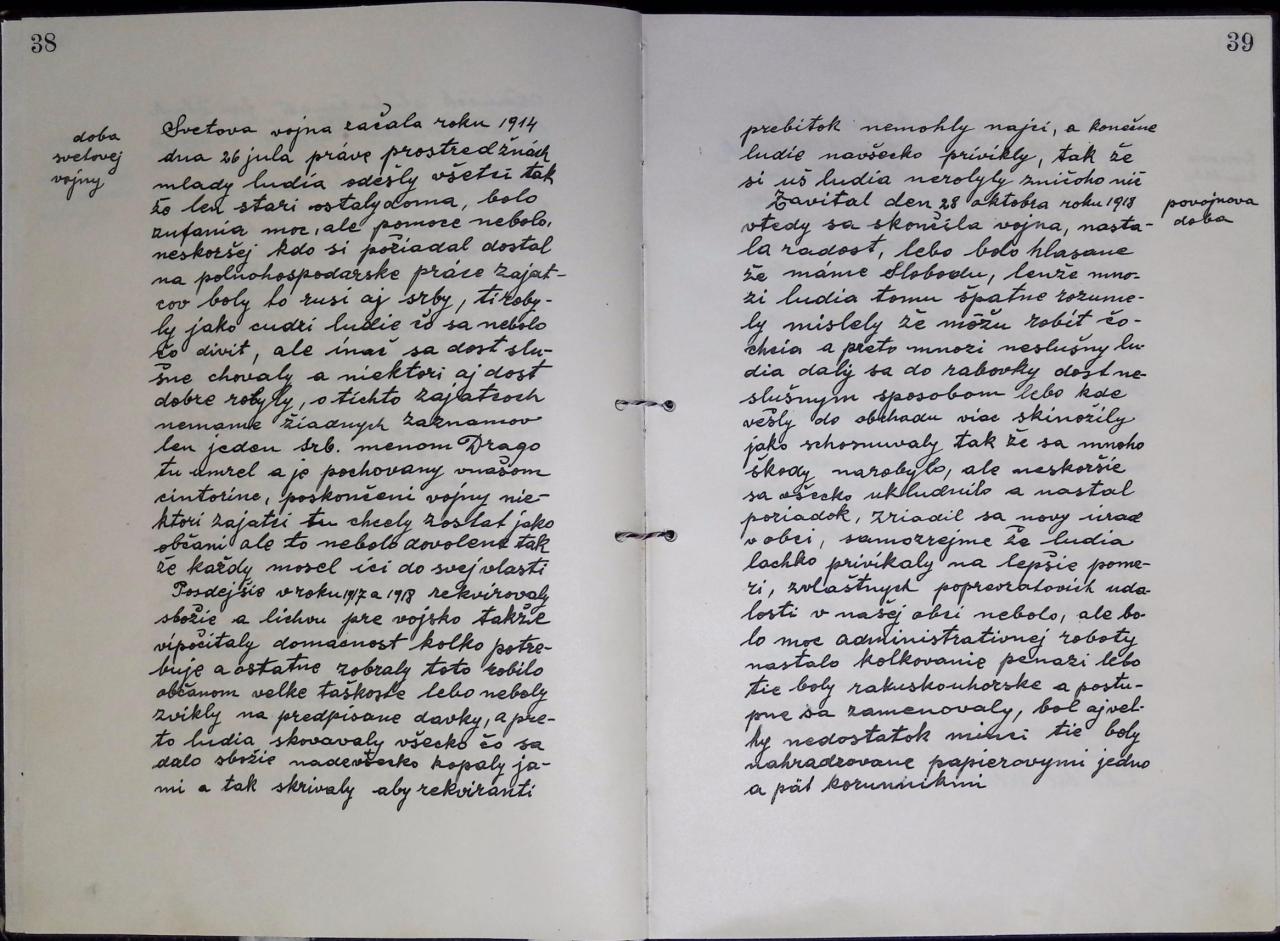 38
doba
svetovej
vojny
Svetova vojna začala roku 1914
dna 26 jula práve prostred žnách
mlady ludia odešly všetci tak
že len stari ostaly doma, bolo
zufania moc, ale pomoce nebolo,
neskoršej kdo si požiadal dostal
na polnohospodarske práce zajat-
cov boly to rusi aj srby, ti roby-
ly jako cudzi ludie čo sa nebolo
čo divit, ale ináč sa dost slu-
šne chovaly a niektori aj dost
dobre robyly, o tichto zajatcoch
nemame žiadnych zaznamov
len jeden srb. menom Drago
tu umrel a je pochovany vnašom
cintorine, poskončeni vojny nie-
ktori zajatci tu chcely zostat jako
občani ale to nebolo dovolene tak
že každy mosel ici do svej vlasti
Pozdejšie v roku 1917 a 1918 rekvirovaly
sbožie a lichvu pre vojsko takže
vipočitaly domacnost kolko potre-
buje a ostatne zobraly toto robilo
občanom velke taškoste lebo neboly
zvikly na predpisane davky, a pre-
to ludia skovavaly všecko čo sa
dalo sbožie nadevšecko kopaly ja-
mi a tak skrivaly aby rekviranti
39
prebitok nemohly najci, a konečne
ludie navšecko privikly, tak že
si uš ludia nerobyly zničoho nič
povojnova
doba
Zavital den 28 oktobra roku 1918
vtedy sa skončila vojna, nasta-
la radost, lebo bolo hlasane
že máme Slobodu, lenže mno-
zi ludia tomu špatne rozume-
ly mislely že môžu robit čo-
chcia a preto mnozi neslušny lu-
dia daly sa do rabovky dost ne-
slušnym sposobom lebo kde
vešly do obchadu viac skinožily
jako schosnuvaly tak že sa mnoho
škody narobylo, ale neskoršie
sa všecko ukludnilo a nastal
poriadok, zriadil sa novy úrad
v obci, samozrejme že ludia
lachko privikaly na lepšie pome-
ri, zvlaštnych poprevratovich uda-
losti v našej obci nebolo, ale bo-
lo moc administrativnej roboty
nastalo kolkovanie penazi lebo
tie boly rakuskouhorske a postu-
pne sa zamenovaly, bol aj vel-
ky nedostatok minci tie boly
nahradzovane papierovymi jedno
a pät korunnikmi